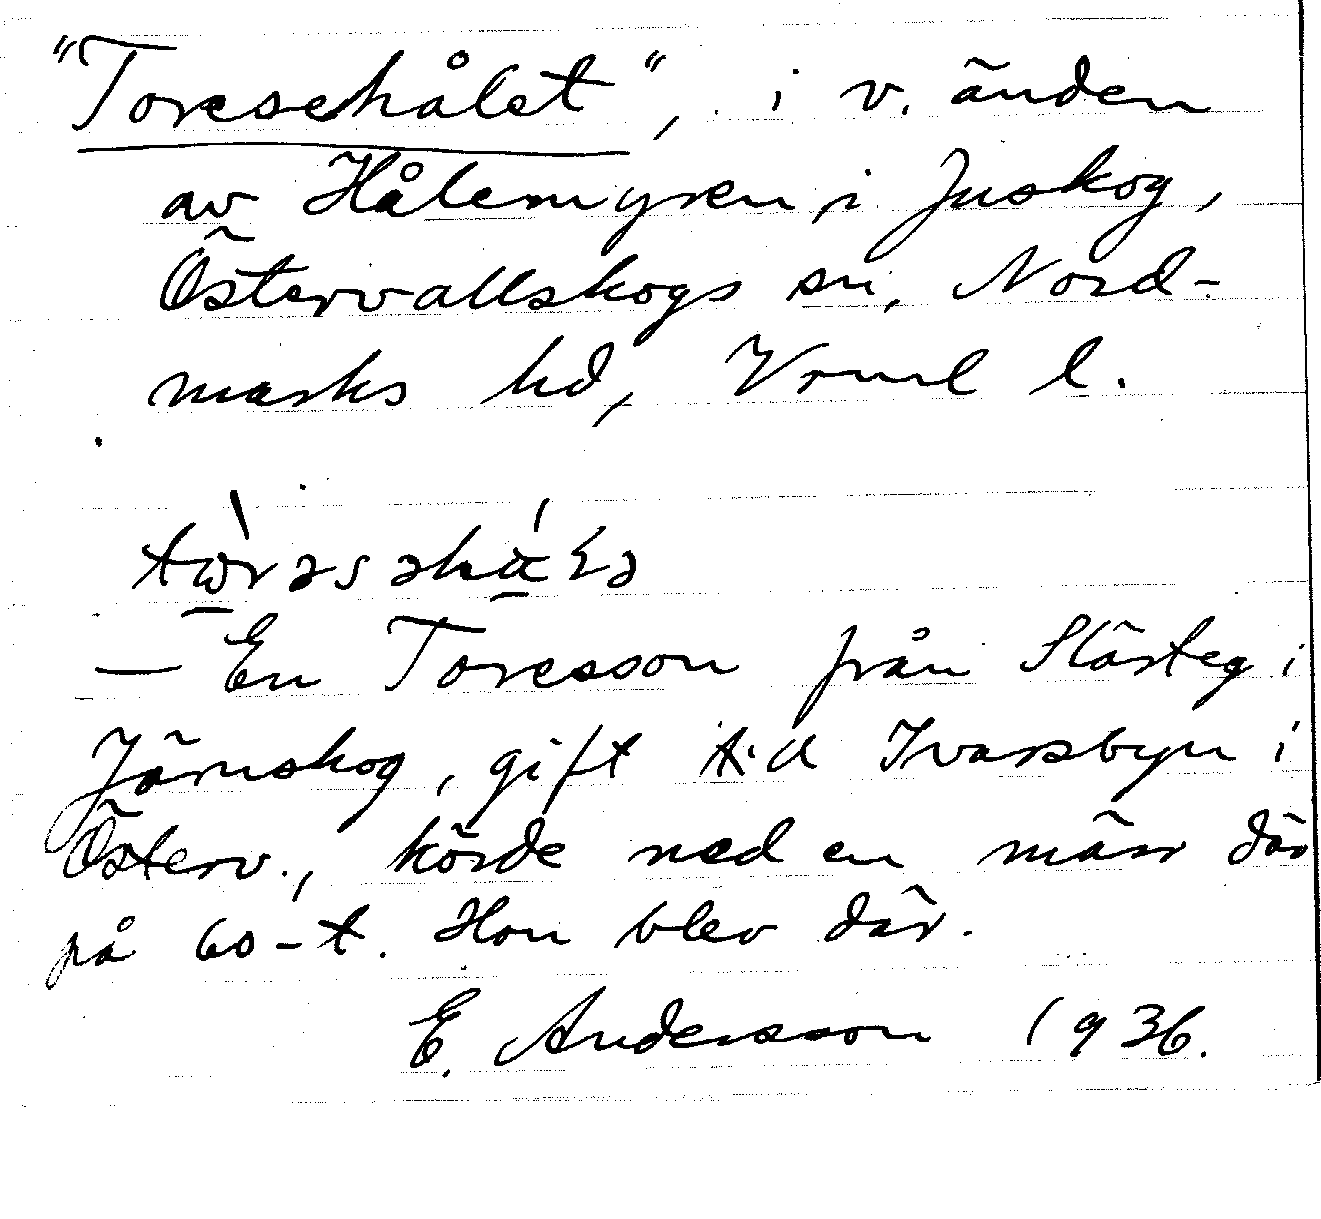 "Toresehålet", i v. änden
av Hålemyren i Juskog,
Östervallskogs sn, Nord-
marks hd, Vrml l.
— En Toresson från Slärteg i
Järnskog, gift t. d Ivarsbyn i
Österv., körde ned en märr där
på 60-t. Hon blev där.
E. Andersson 1936.